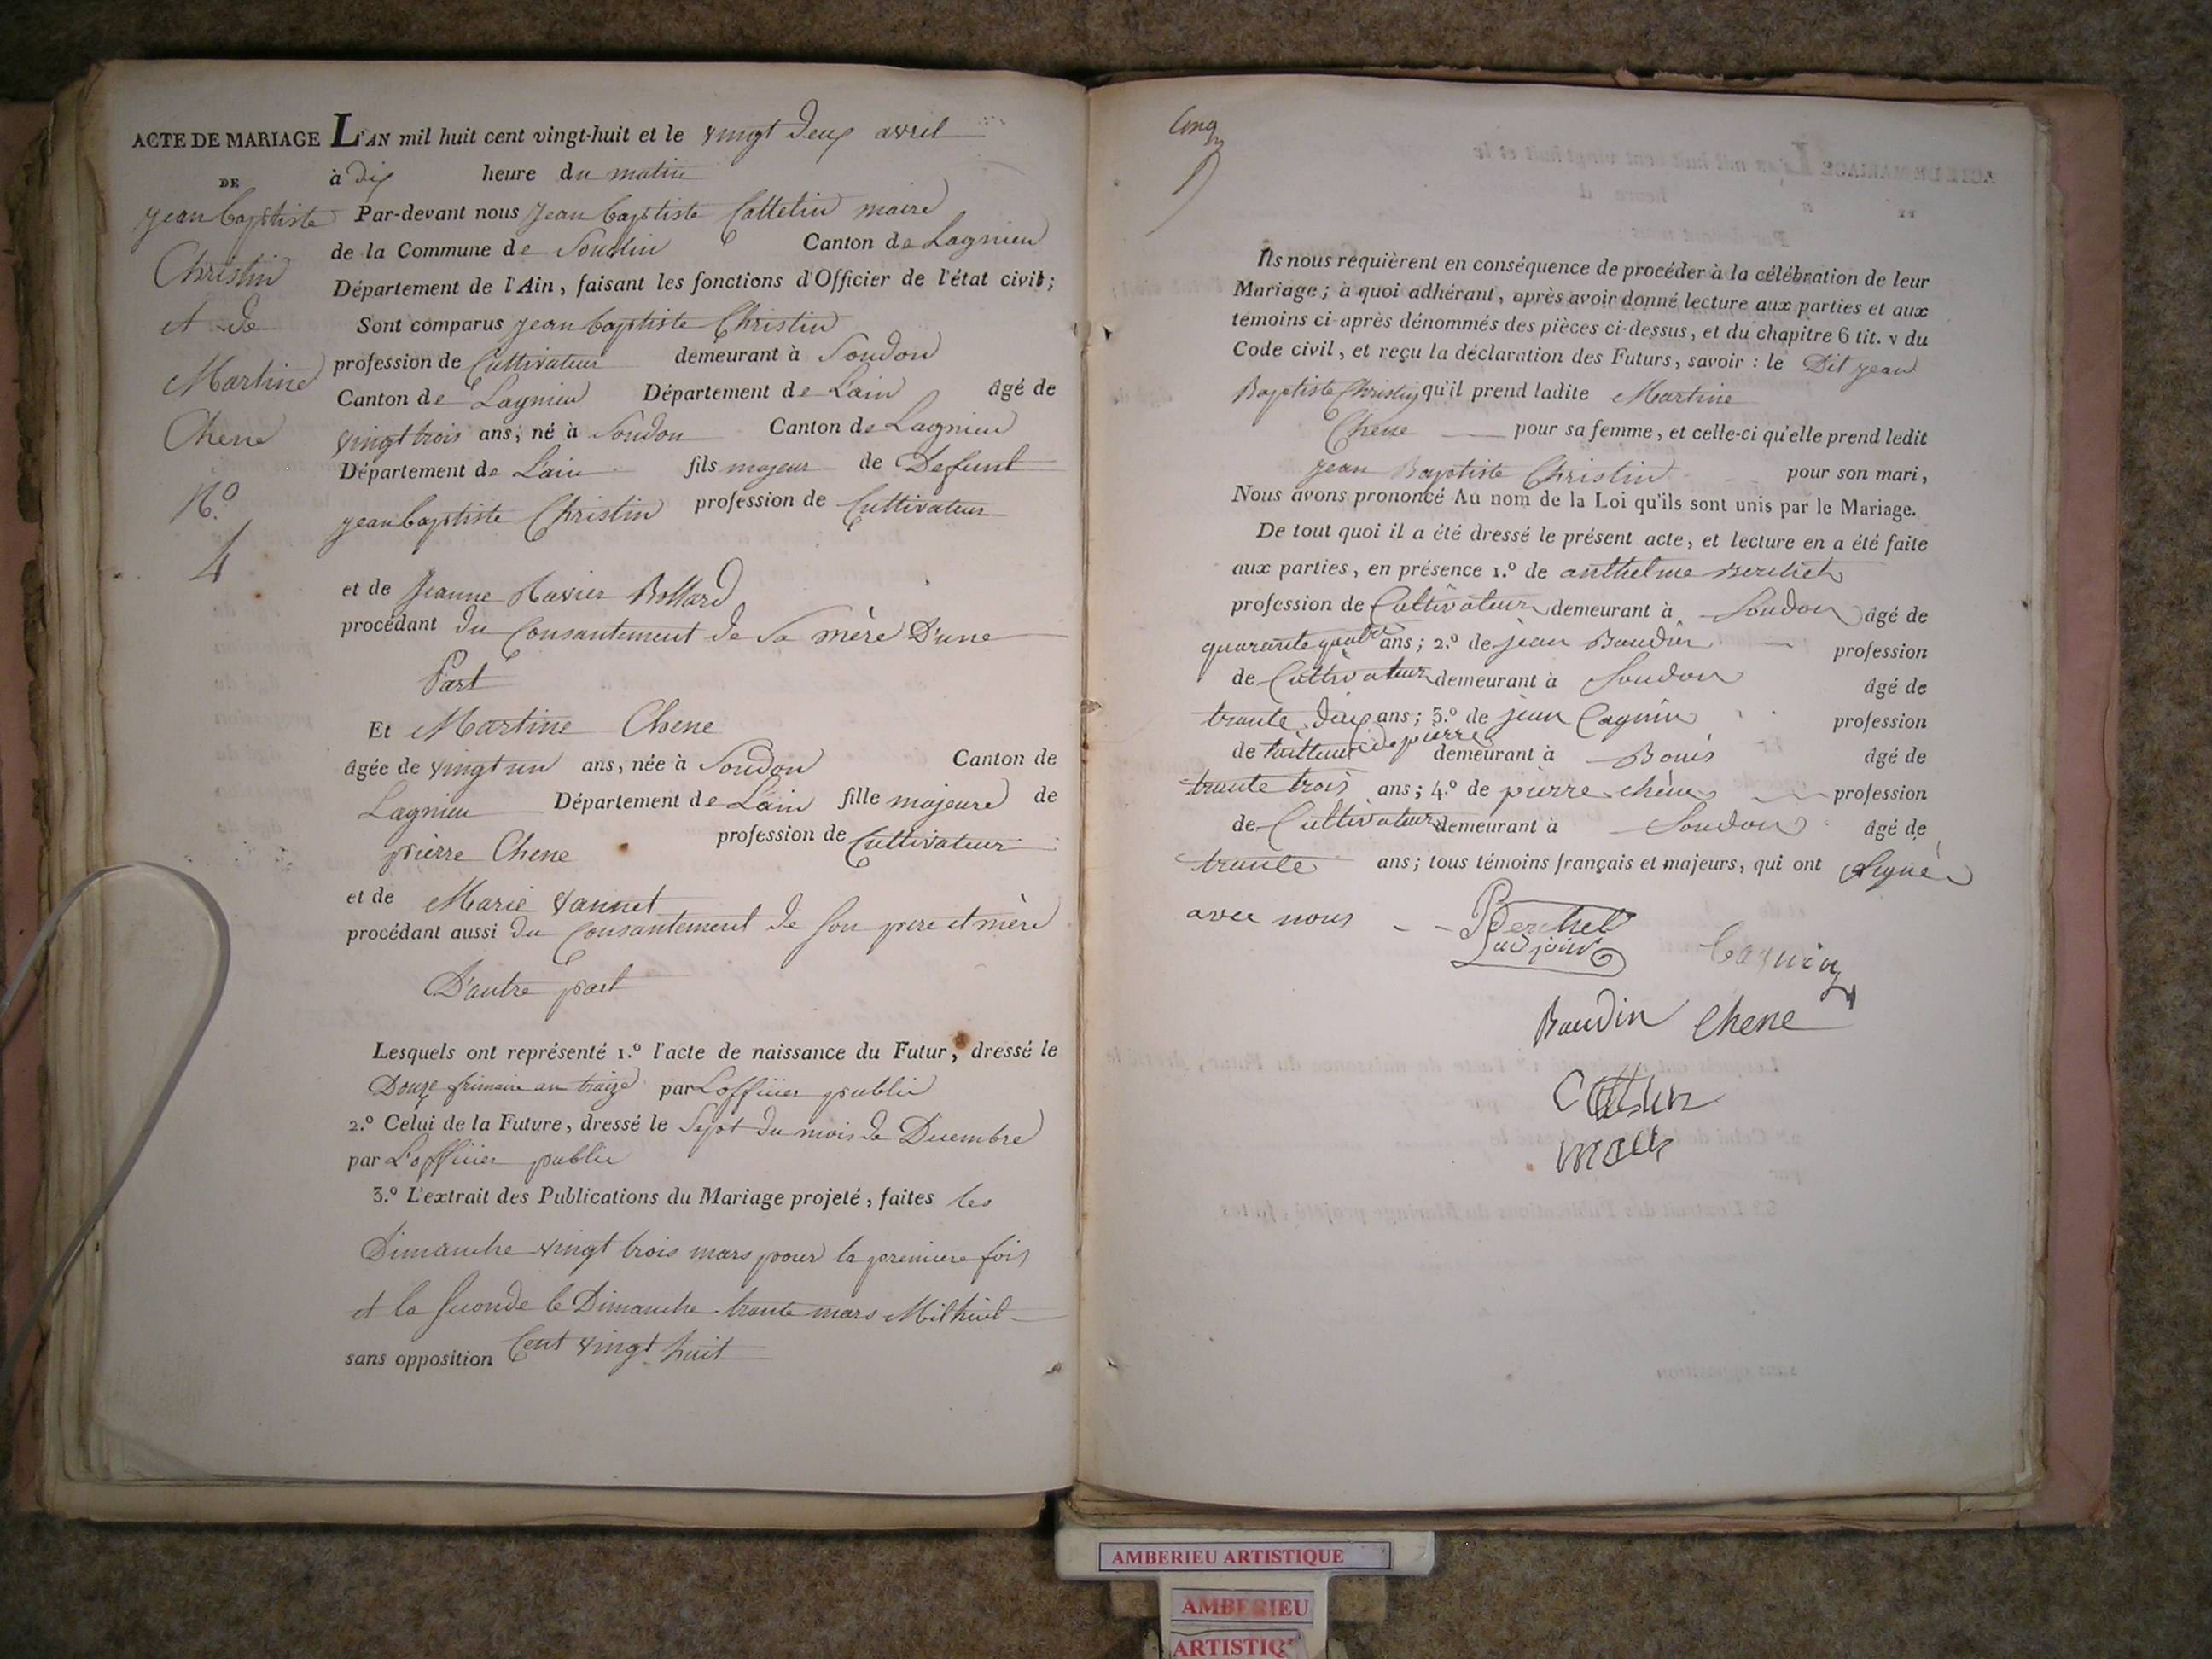 ACTE DE MARIAGE
DE
jean baptiste
Christin
et de
Martine
Chene
N.º
4
L'AN mil huit cent vingt-huit et le vingt deux avril
à dix heure du matin
Par-devant nous jean baptiste Cattelin maire
de la Commune de Soudon Canton de Lagnieu
Département de l'Ain, faisant les fonctions d'Officier de l'état civil;
Sont comparus jean baptiste Christin
profession de Cultivateur demeurant à Soudon
Canton de Lagnieu Département de L'ain âgé de
vingt trois ans, né à Soudon Canton de Lagnieu
Département de L'ain fils majeur de Defunt
jean baptiste Christin profession de Cultivateur
et de Jeanne
procédant du Consantement de Sa mère D'une
Part
Et Martine Chene
âgée de vingt un ans, née à Soudon Canton de
Lagnieu Département de L'ain fille majeure de
pierre Chene profession de Cultivateur
et de Marie vannet
procédant aussi du Consantement de Son pere et mère
D'autre part
Lesquels ont représenté 1.º l'acte de naissance du Futur, dressé le
Douze frimaire an traize par L'officier public
2.º Celui de la Future, dressé le Sept du mois de Decembre
par L'officier public
3.º L'extrait des Publications du Mariage projeté, faites les
Dimanche vingt trois mars pour la premiere fois
et la Seconde le Dimanche trante mars Mil huit
sans opposition Cent vingt huit
Cinq
Ils nous requièrent en conséquence de procéder à la célébration de leur
Mariage; à quoi adhérant, après avoir donné lecture aux parties et aux
témoins ci-après dénommés des pièces ci-dessus, et du chapitre 6 tit. v du
Code civil, et reçu la déclaration des Futurs, savoir : le Dit jean
Baptiste Christin qu'il prend ladite Martine
Chene pour sa femme, et celle-ci qu'elle prend ledit
jean Baptiste Christin pour son mari,
Nous avons prononcé Au nom de la Loi qu'ils sont unis par le Mariage.
De tout quoi il a été dressé le présent acte, et lecture en a été faite
aux parties, en présence 1.º de anthelme Berthet
profession de Cultivateur demeurant à Soudon âgé de
quarante quatre ans; 2.º de jean Baudin profession
de Cultivateur demeurant à Soudon âgé de
trante deux ans; 3.º de jean Cagnin profession
de tailleur de pierre demeurant à Bouis âgé de
trante trois ans; 4.º de pierre chêne profession
de Cultivateur demeurant à Soudon âgé de
trante ans; tous témoins français et majeurs, qui ont Signé
avec nous
Berthet
adjoint
Cagnin
Baudin Chene
AMBERIEU ARTISTIQUE
AMBERIEU
ARTISTIQ